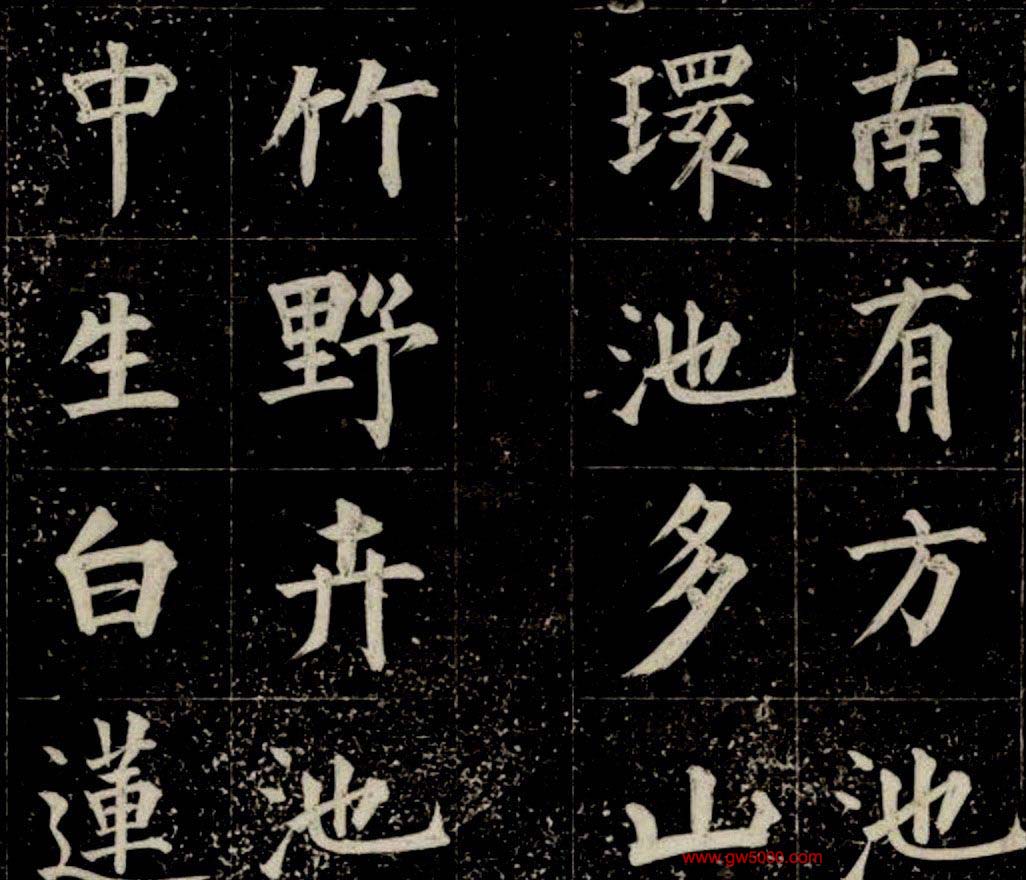 南有方池
環池多山
竹野卉池
中生白蓮
www.gw5000.com